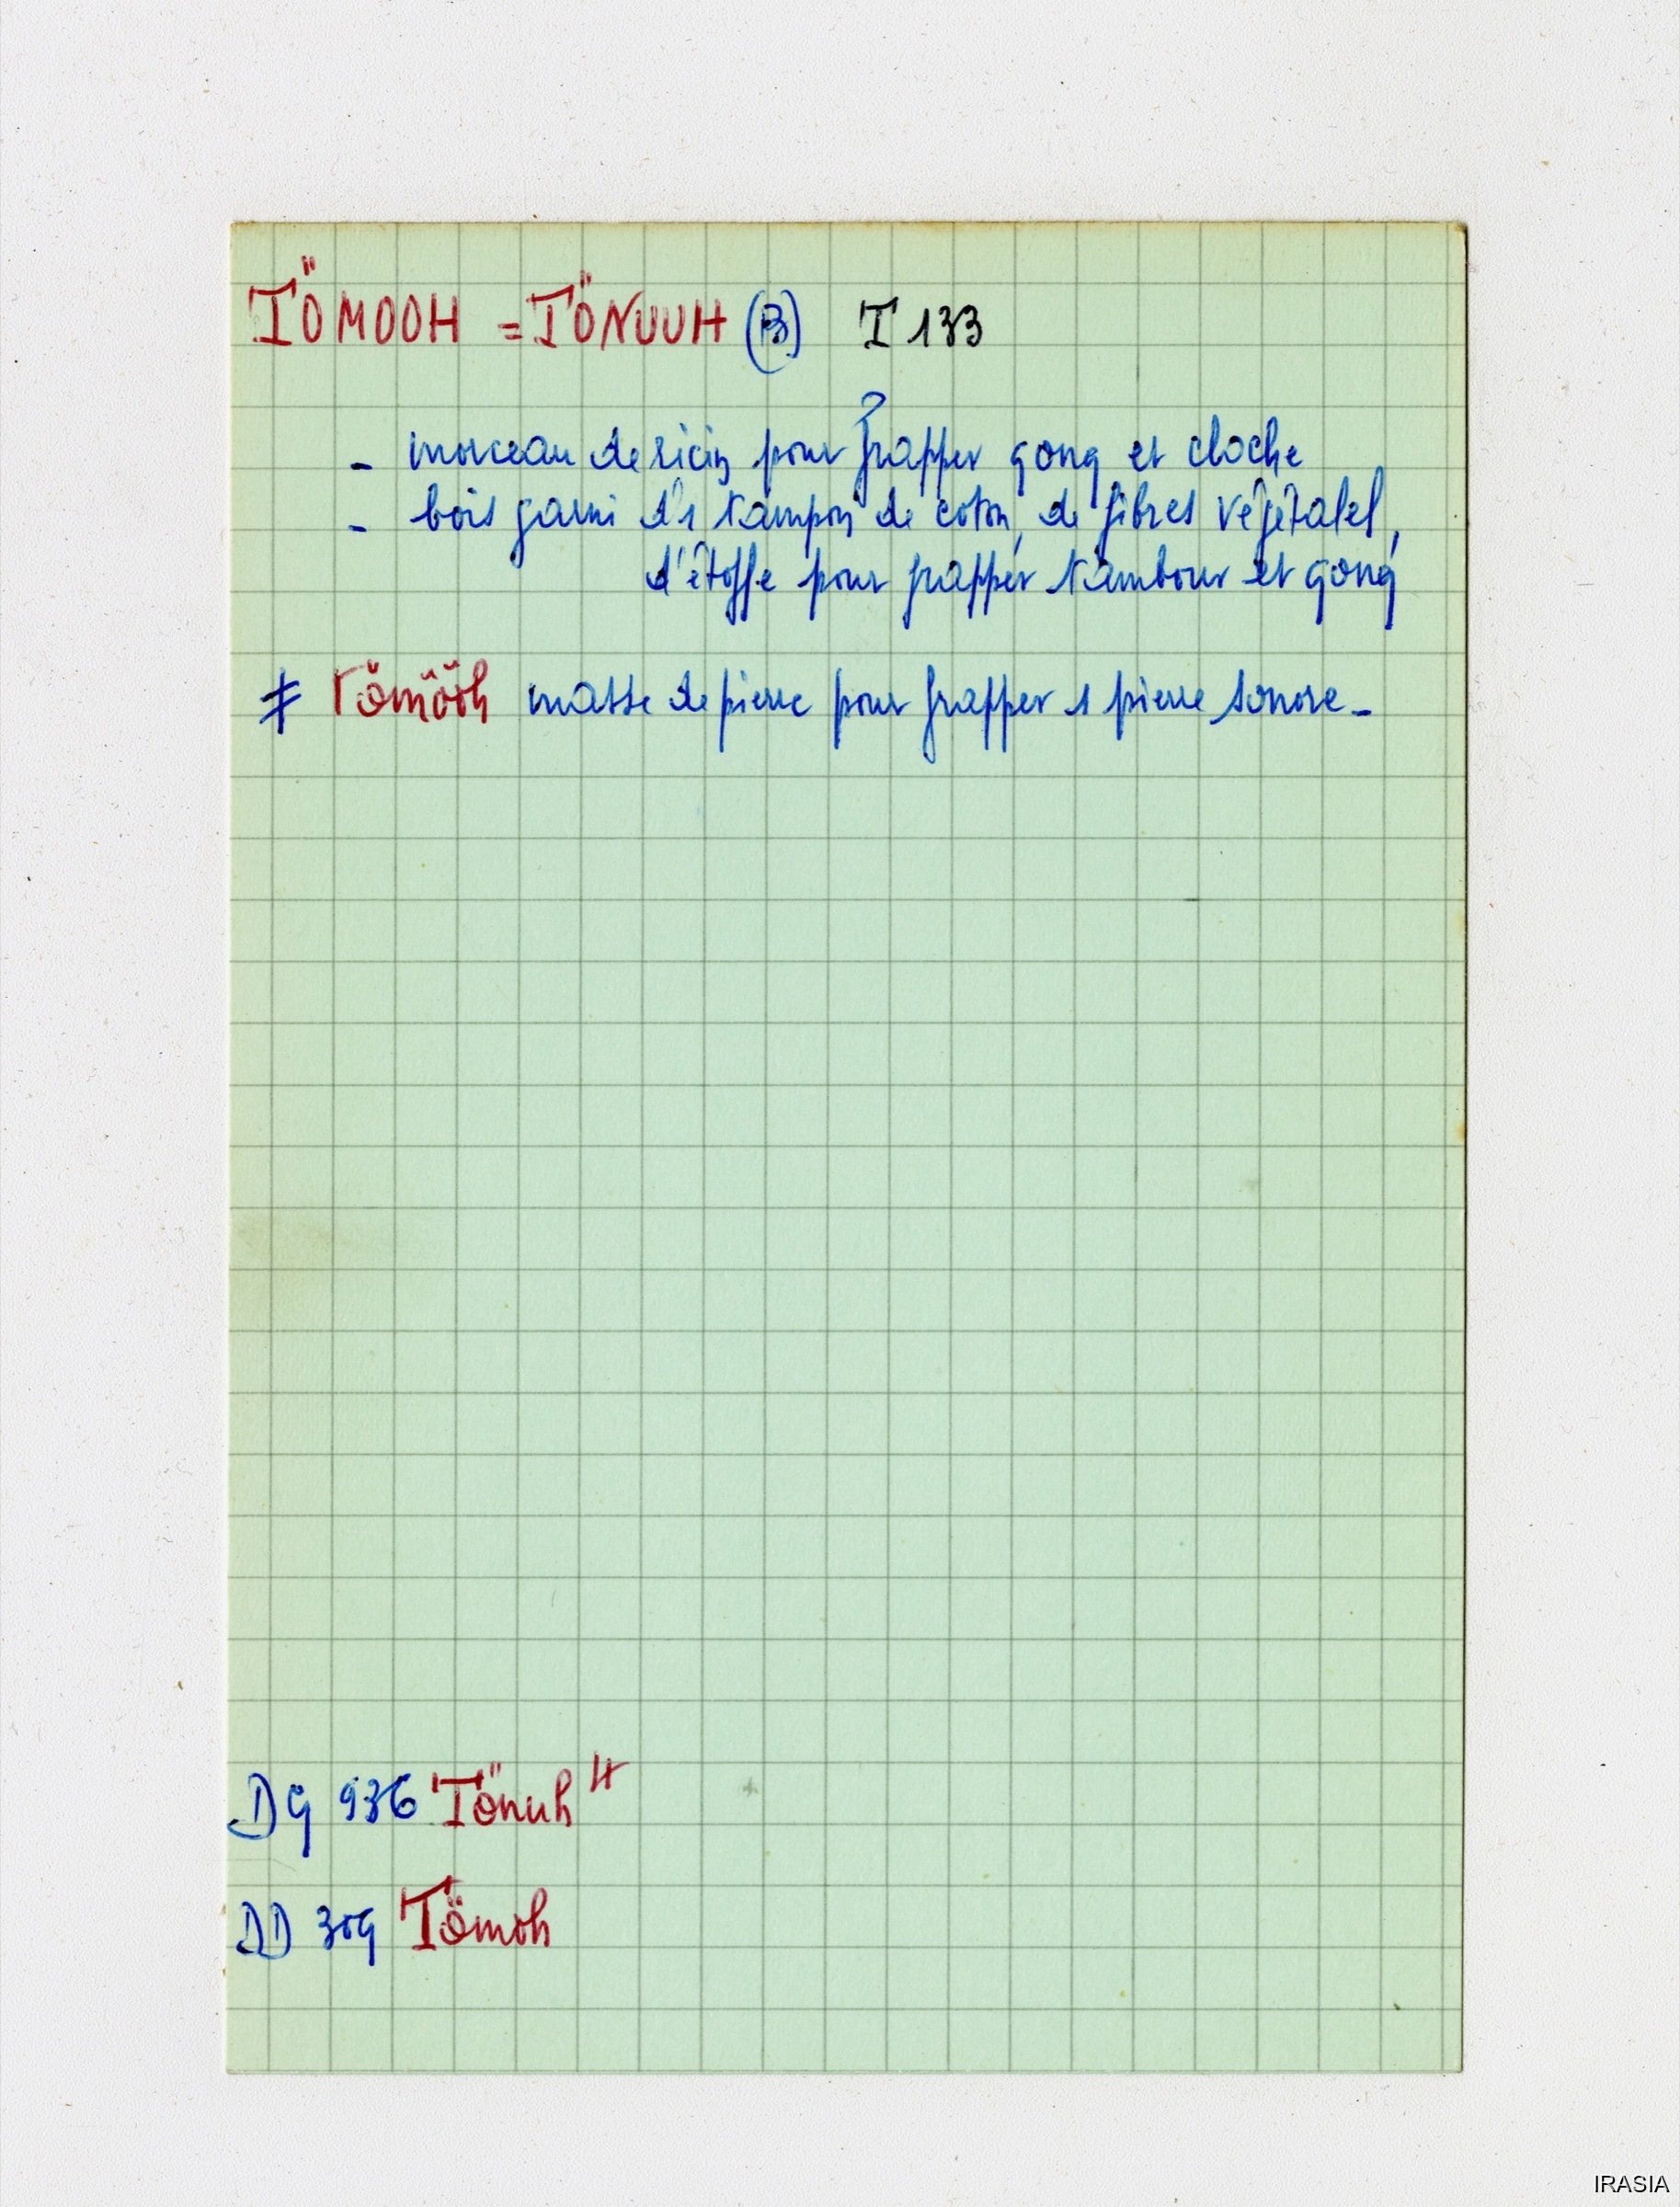 TÖMOOH = TÖNUUH (B) T 133
?
- morceau de ricin pour frapper gong et cloche
- bois garni d'1 tampon de coton, de fibres végétales,
d'étoffe pour frapper tambour et gong
≠ tömööh masse de pierre pour frapper 1 pierre sonore -
DG 936 Tönuh
DD 309 Tömoh
IRASIA